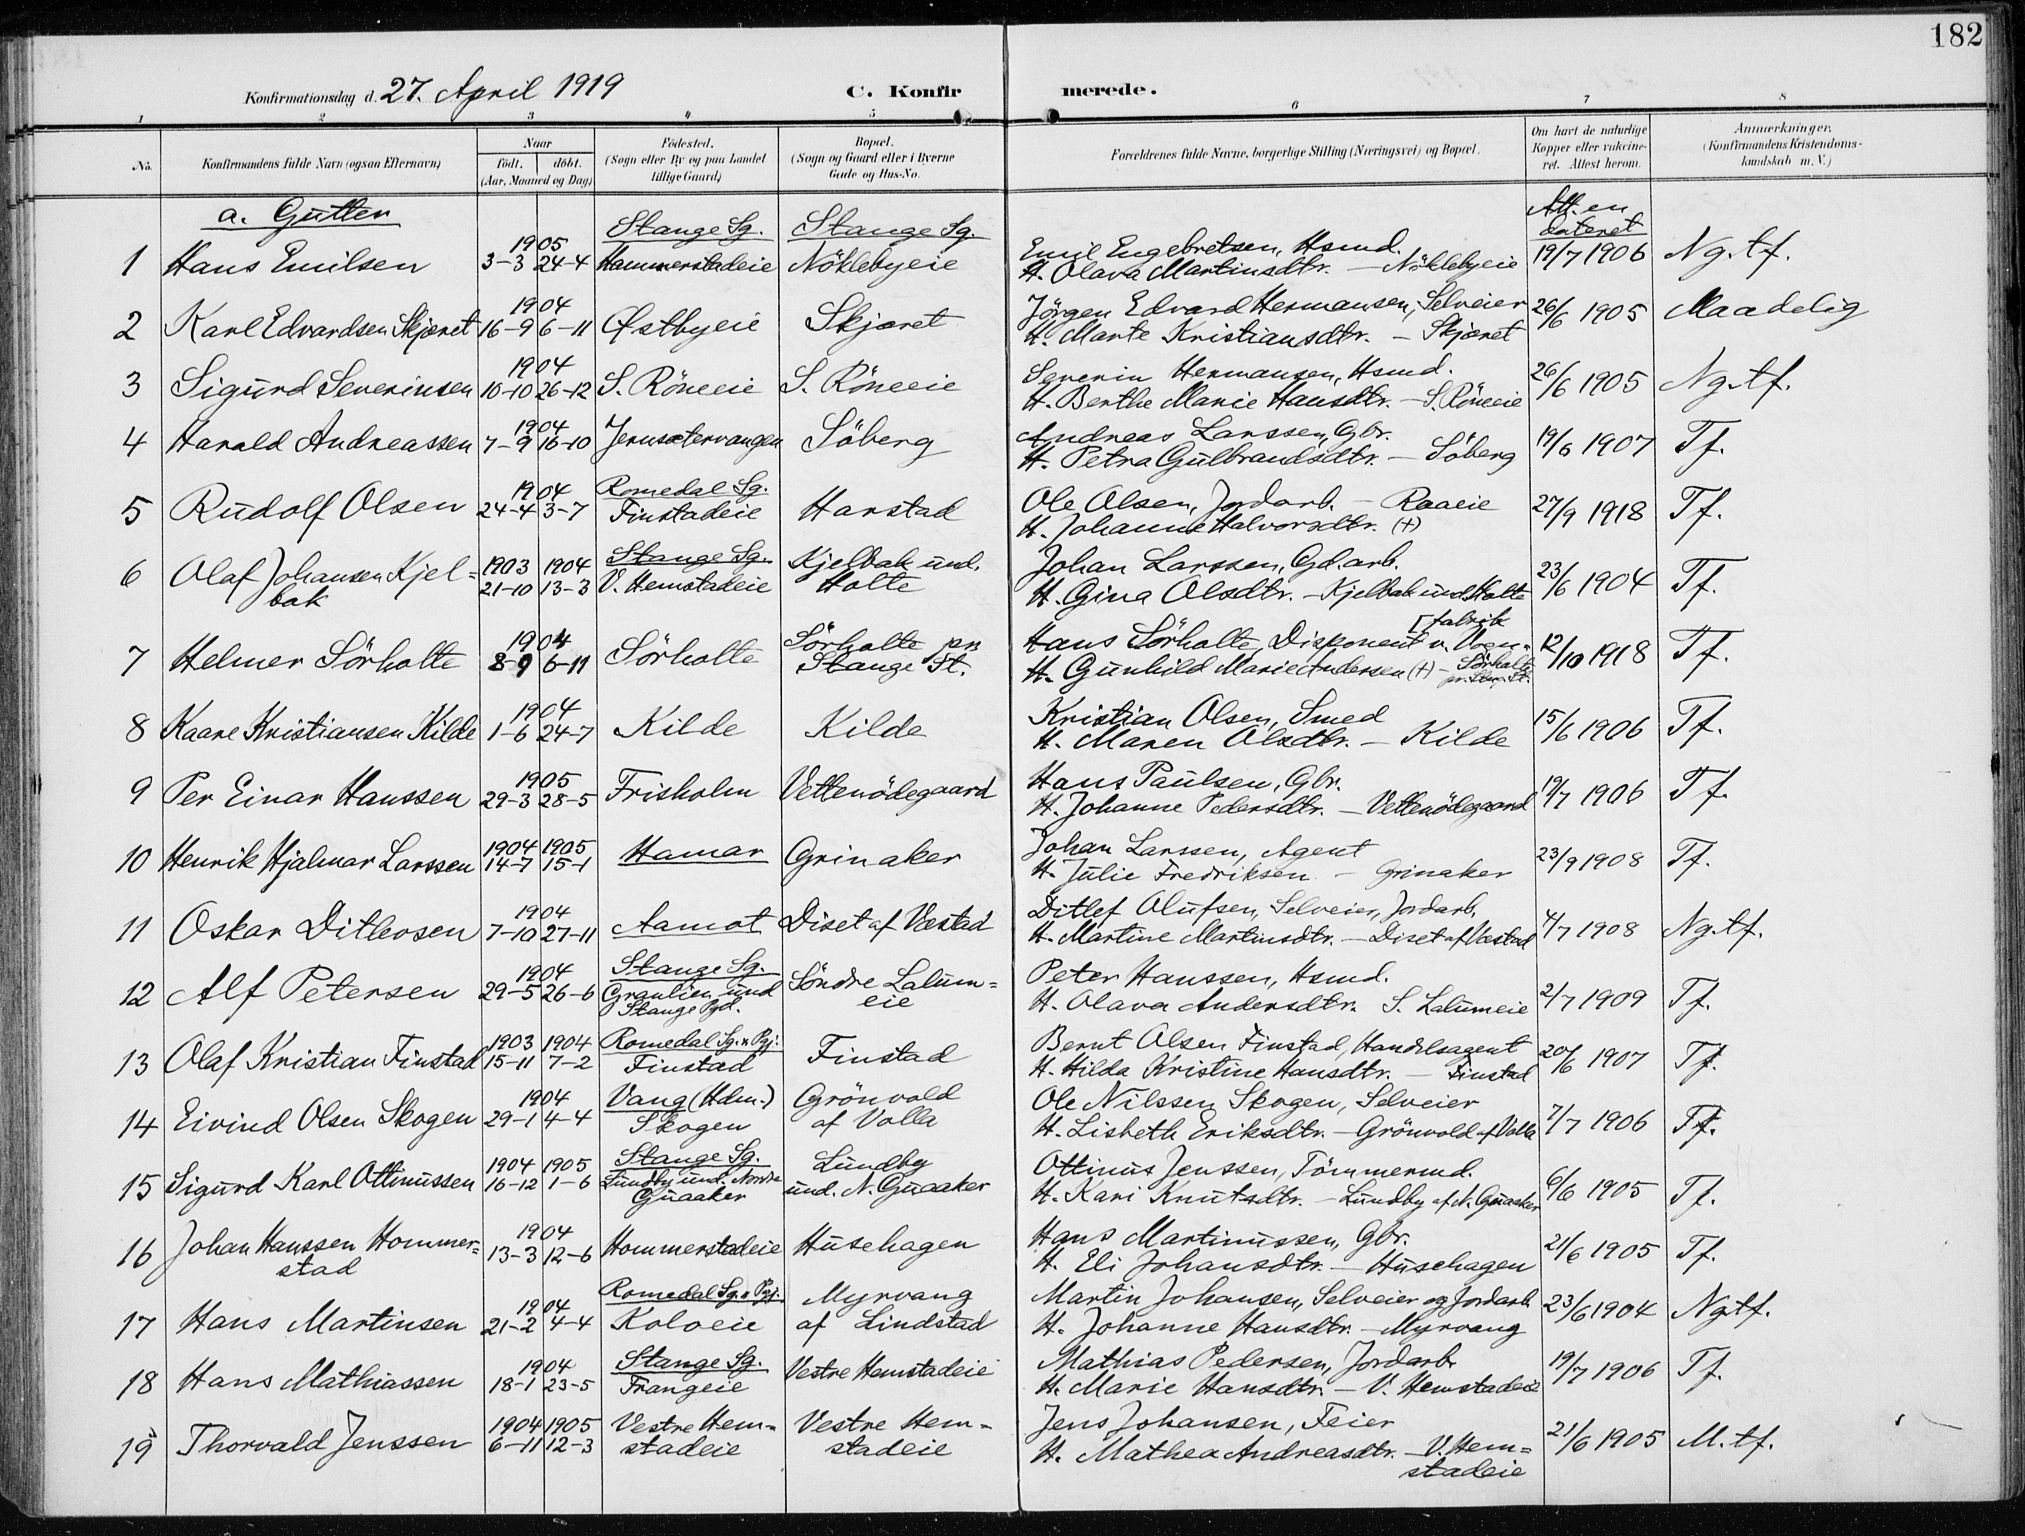 182
Konfirmationsdag d. 27. April 1919
C. Konfir merede.
1 2 3 4 5 6 7 8
No. Konfirmandens fulde Navn (ogsaa Efternavn)
Naar
født. døbt.
(Aar, Maaned og Dag)
Fødested.
(Sogn eller By og paa Landet
tillige Gaard)
Bopæl.
(Sogn og Gaard eller i Byerne
Gade og Hus-No.
Forældrenes fulde Navne, borgerlige Stilling (Næringsvei) og Bopæl.
Om havt de naturlige
Kopper eller vakcine-
ret. Attest herom.
Anmærkninger.
(Konfirmandens Kristendoms-
kundskab m. V.)
a. Gutter
Att. en
dateret
1 Hans Emilsen 1905 3-3 24-4 Stange Sg. Hammerstadeie Stange Sg. Nöklebyeie Emil Engebretsen, Hsmd.
H. Olava Martinsdtr. – Nöklebyeie 19/7 1906 Ng. tf.
2 Karl Edvardsen Skjæret 1904 16-9 6-11 Østbyeie Skjæret Jörgen Edvard Hermansen, Selveier
H. Marte Kristiansdtr. – Skjæret 26/6 1905 Maadelig
3 Sigurd Severinsen 1904 10-10 26-12 S. Röneeie S. Röneeie Severin Hermansen, Hsmd.
H. Berthe Marie Hansdtr. – S. Röneeie 26/6 1905 Ng. tf.
4 Harald Andreassen 1904 7-9 16-10 Jerusætervangen Söberg Andreas Larssen, Gbr.
H. Petra Gulbrandsdtr. – Söberg 19/6 1907 Tf.
5 Rudolf Olsen 1904 24-4 3-7 Romedal Sg. Finstadeie Harstad Ole Olsen, Jordarb. – Raaeie
H. Johanne Halvorsdtr. (+) 27/9 1918 Tf.
6 Olaf Johansen Kjel=
bak 1903 21-10 1904 13-3 Stange Sg. V. Hemstadeie Kjelbak und.
Holte Johan Larssen, Gd.arb.
H. Gina Olsdtr. – Kjelbak und Holte 23/6 1904 Tf.
7 Helmer Sörholte 1904 8-9 6-11 Sörholte Sörholte pr.
Stange St. Hans Sörholte, Disponent v. Vogn-
[fabrik
H. Gunhild Marie Andersen (+) – Sörholte
pr. Stan. St. 12/10 1918 Tf.
8 Kaare Kristiansen Kilde 1904 1-6 24-7 Kilde Kilde Kristian Olsen, Smed
H. Maren Olsdtr. – Kilde 15/6 1906 Tf.
9 Per Einar Hanssen 1905 29-3 28-5 Frisholm Vettenödegaard Hans Paulsen, Gbr.
H. Johanne Pedersdtr. – Vettenödegaard 19/7 1906 Tf.
10 Henrik Hjalmar Larssen 1904 14-7 1905 15-1 Hamar Grinaker Johan Larssen, Agent
H. Julie Fredriksen – Grinaker 23/9 1908 Tf.
11 Oskar Ditlevsen 1904 7-10 27-11 Aamot Diset af Væstad Ditlef Olufsen, Selveier, Jordarb.
H. Martine Martinsdtr. – Diset af Væstad 4/7 1908 Ng. tf.
12 Alf Petersen 1904 29-5 26-6 Stange Sg. Granlien und
Stange Pgd. Söndre Lalum=
eie Peter Hanssen, Hsmd.
H. Olava Andersdtr. S. Lalumeie 2/7 1909 Tf.
13 Olaf Kristian Finstad 1903 15-11 1904 7-2 Romedal Sg. & Pgj. Finstad Finstad Bernt Olsen Finstad, Handelsagent
H. Hilda Kristine Hansdtr. – Finstad 20/6 1907 Tf.
14 Eivind Olsen Skogen 1904 29-1 4-4 Vang (Hdm.) Skogen Grönvold
af Volla Ole Nilssen Skogen, Selveier
H. Lisbeth Eriksdtr. – Grönvold af Volla 7/7 1906 Tf.
15 Sigurd Karl Ottinussen 1904 16-12 1905 1-6 Stange Sg. Lundby und. Nordre
Guaaker Lundby
und. N. Guaaker Ottinus Jenssen, Tömmermd.
H. Kari Knutsdtr. – Lundby af N. Guaaker 6/6 1905 Tf.
16 Johan Hanssen Hommer=
stad 1904 13-3 12-6 Hommerstadeie Husehagen Hans Martinussen, Gbr.
H. Eli Johansdtr. – Husehagen 21/6 1905 Tf.
17 Hans Martinsen 1904 21-2 4-4 Romedal Sg. & Pgj. Koloeie Myrvang
af Lindstad Martin Johansen, Selveier og Jordarb.
H. Johanne Hansdtr. – Myrvang 23/6 1904 Ng. tf.
18 Hans Mathiassen 1904 18-1 23-5 Stange Sg. Frangeie Vestre Hemstadeie Mathias Pedersen, Jordarb.
H. Marie Hansdtr. – V. Hemstadeie 19/7 1906 Tf.
19 Thorvald Jenssen 1904 6-11 1905 12-3 Vestre Hem=
stadeie Vestre Hem-
stadeie Jens Johansen, Feier
H. Mathea Andreasdtr. – V. Hem=
stadeie 21/6 1905 M. tf.